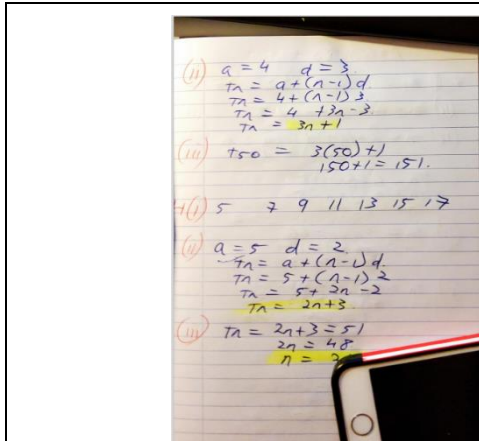 (ii) a = 4 d = 3
Tn = a + (n-1) d.
Tn = 4 + (n-1) 3
Tn = 4 + 3n - 3
Tn = 3n + 1
(iii) T50 = 3(50) + 1
150 + 1 = 151.
(i) 5 7 9 11 13 15 17
(ii) a = 5 d = 2
Tn = a + (n-1) d.
Tn = 5 + (n-1) 2
Tn = 5 + 2n - 2
Tn = 2n + 3.
(iii) Tn = 2n + 3 = 51
2n = 48
n = 2